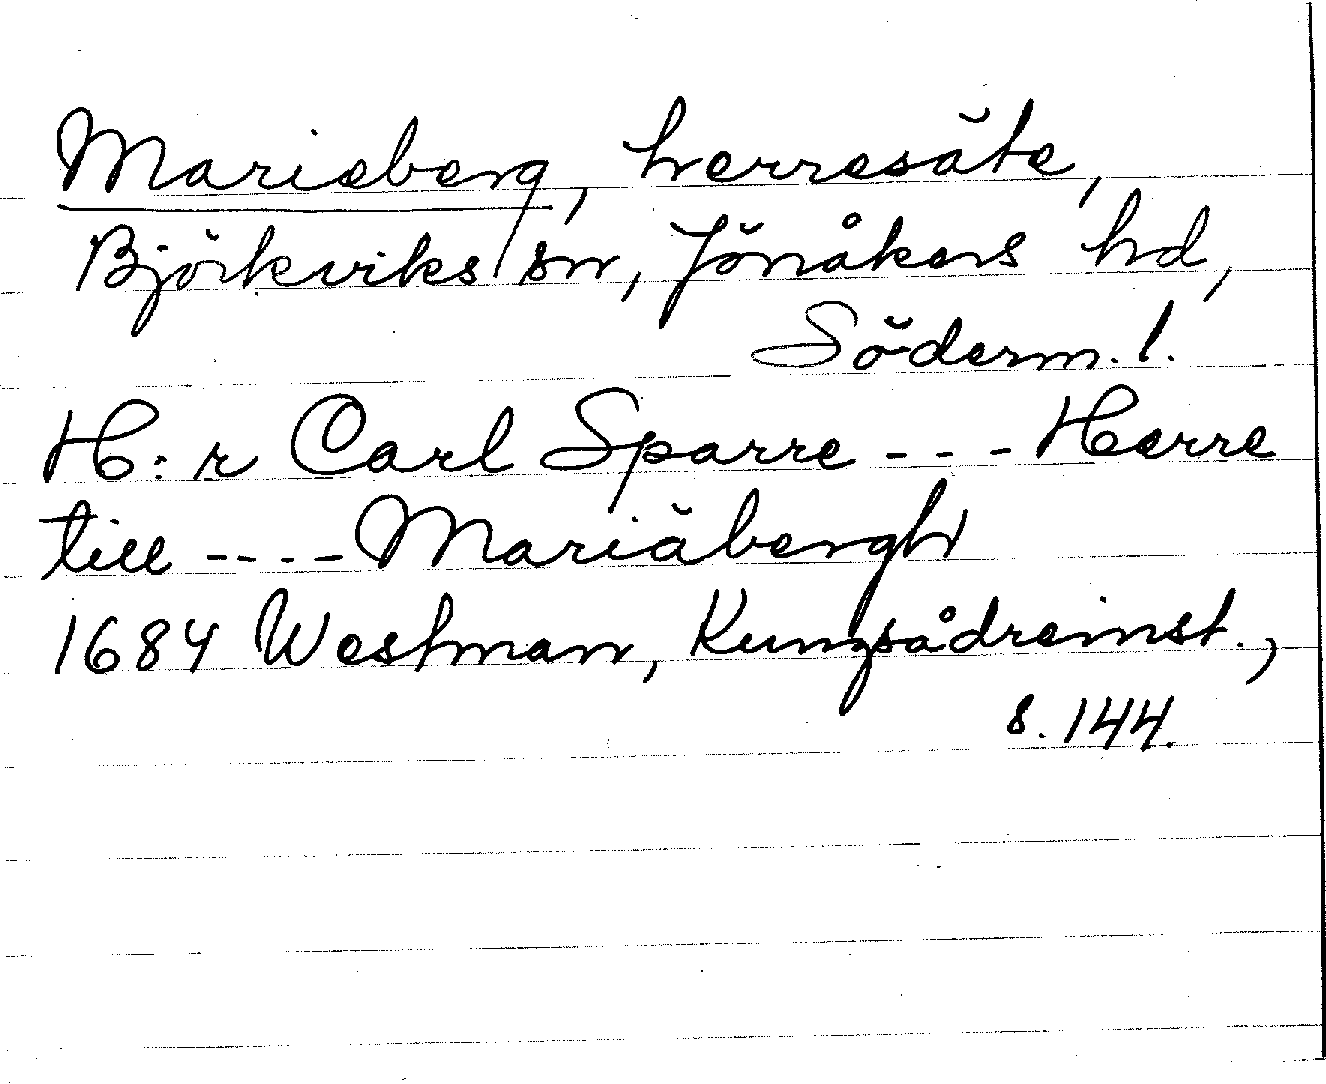 Marieberg, herresäte,
Björkviks sn, Jönåkers hd,
Söderm. l.
H:r Carl Sparre - - - Herre
till - - - - Mariäbergh
1684 Westman, Kungsådreinst.,
s. 144.